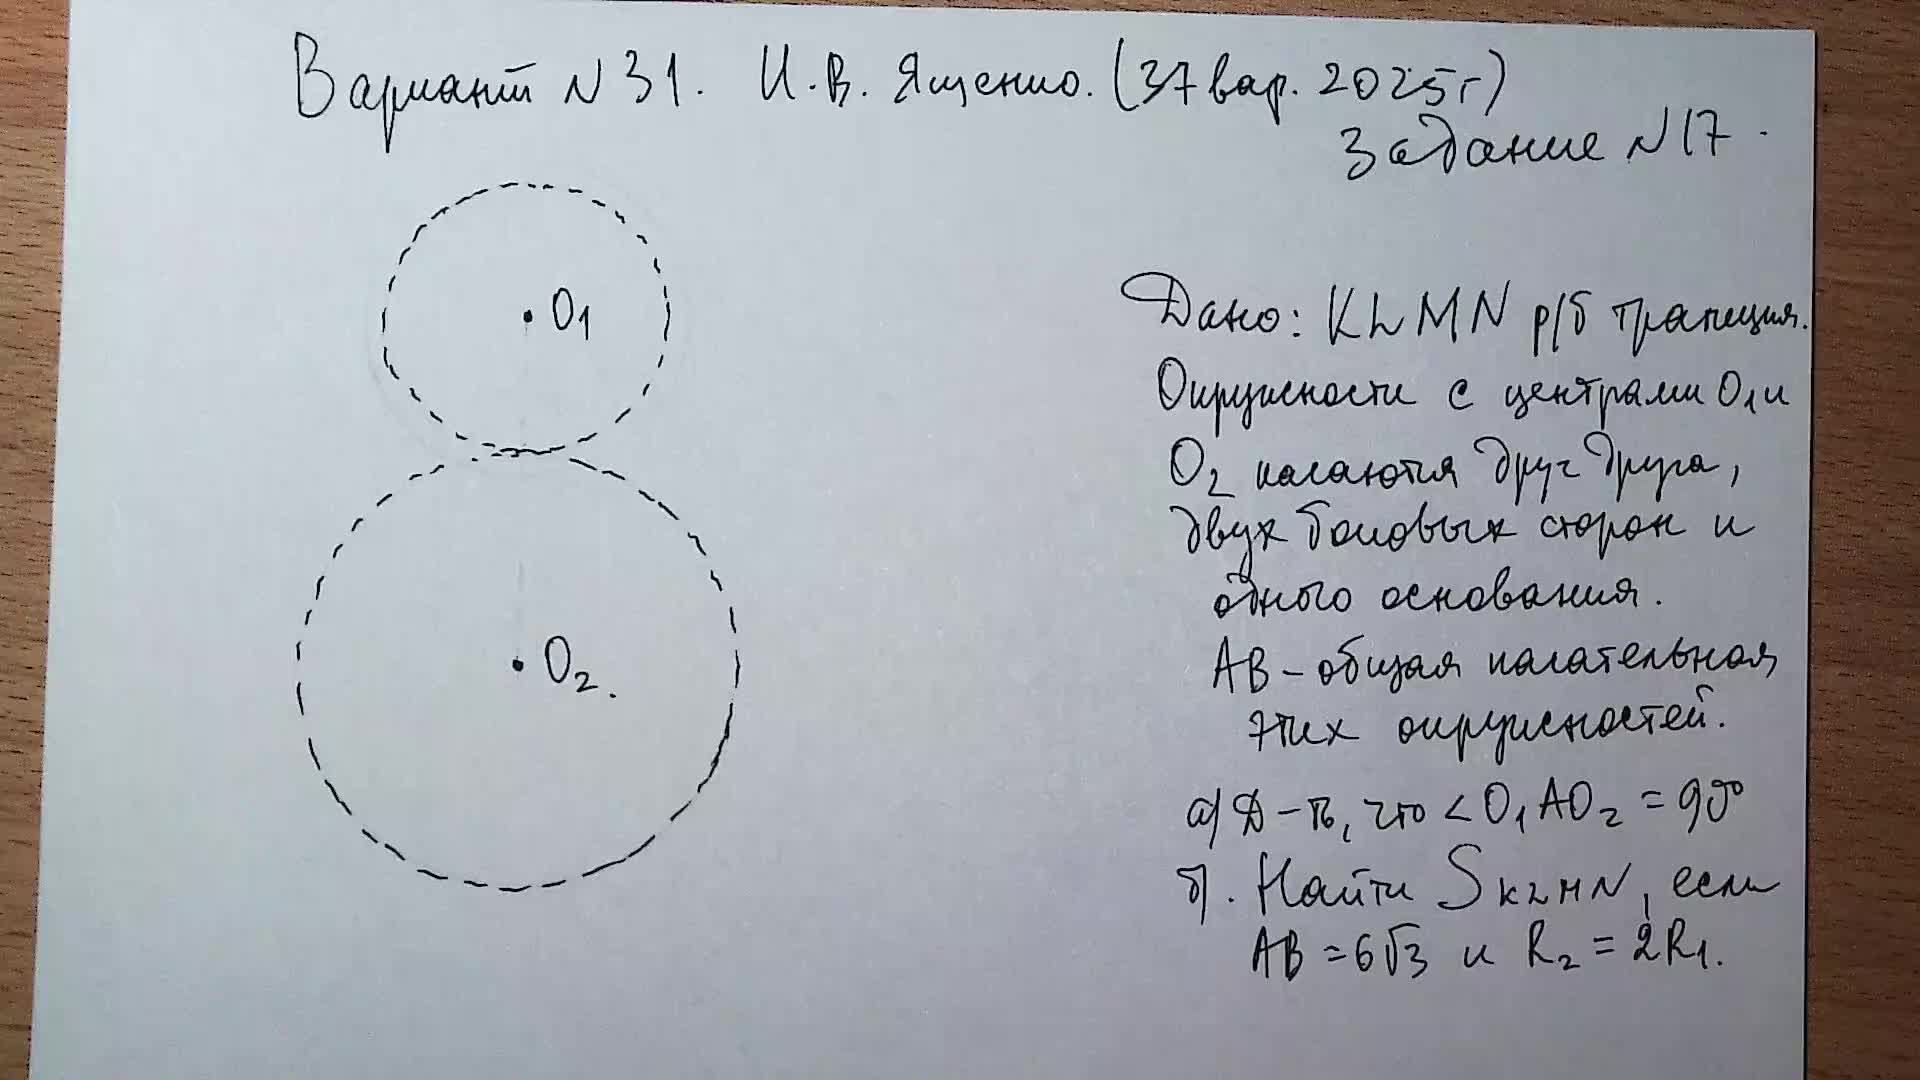 Вариант №31. И.В. Ященко. (37 вар. 2025г)
Задание №17.
O1
O2.
Дано: KLMN р/б трапеция.
Окружности с центрами O1 и
O2 касаются друг друга,
двух боковых сторон и
одного основания.
AB - общая касательная
этих окружностей.
а) Д-ть, что <O1AO2 = 90°
б). Найти SKLMN, если
AB = 6√3 и R2 = 2R1.